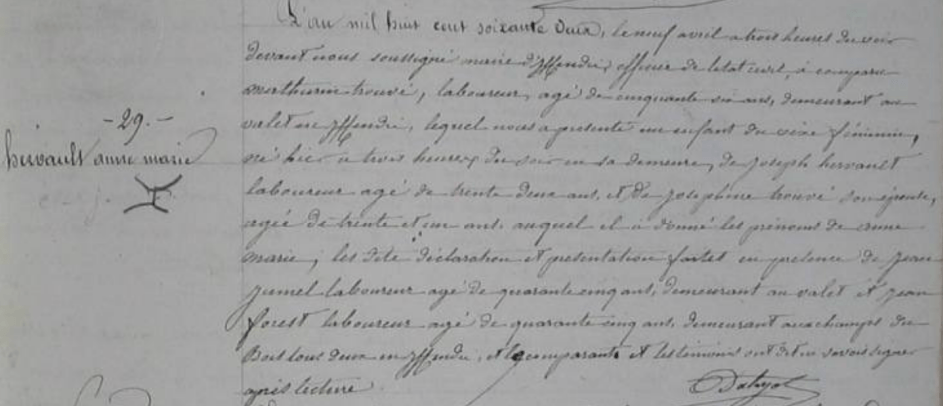 L'an mil huit cent soixante deux, le neuf avril a trois heures du soir
devant nous soussigné maire d'Iffendic, officier de letat civil, a comparu
mathurin trouvé, laboureur, agé de cinquante six ans, demeurant au
valet en Iffendic, lequel nous a presenté un enfant du sexe féminin,
-29.-
hervault anne marie
né hier a trois heures du soir en sa demeure, de joseph hervault
laboureur agé de trente deux ans, et de josephine trouvé son épouse,
agée de trente et un ans, auquel il a donné les prénoms de anne
marie, les dite déclaration et presentation faites en presence de jean
jumel laboureur agé de quarante cinq ans, demeurant au valet et jean
forest laboureur agé de quarante cinq ans, demeurant aux champs du
Bois tous deux en Iffendic, et le comparant et les temoins ont dit ne savoir signer
après lecture.